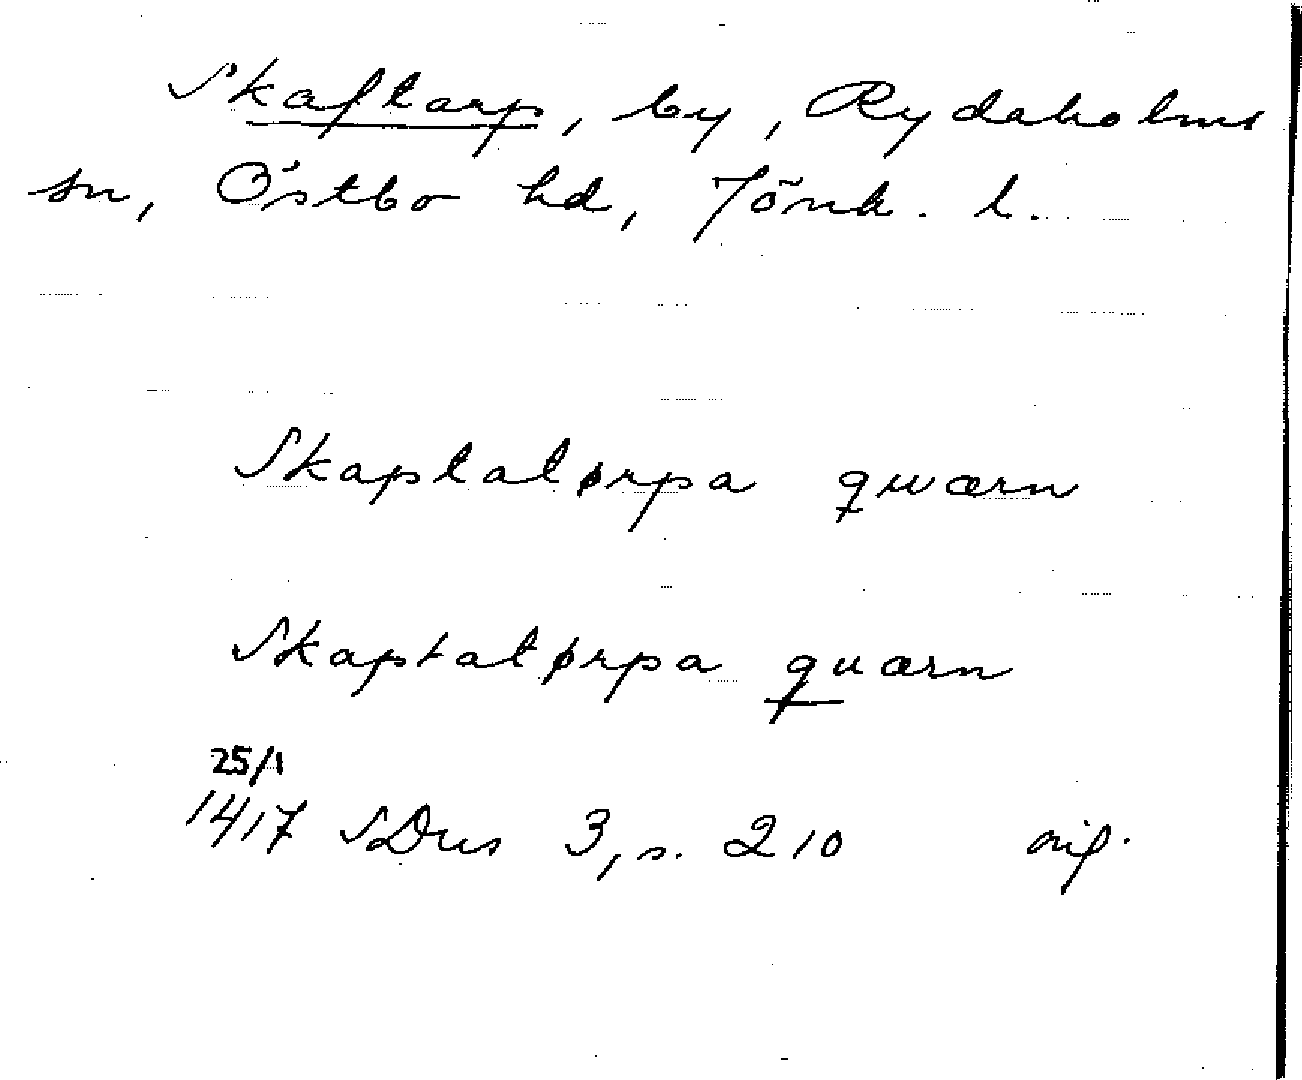 Skaftarp, by, Rydaholms
sn, Östbo hd, Jönk. l.
Skaptatørpa quærn
Skaptatørpa quærn
25/1
1417 SDns 3, s. 210 orig.